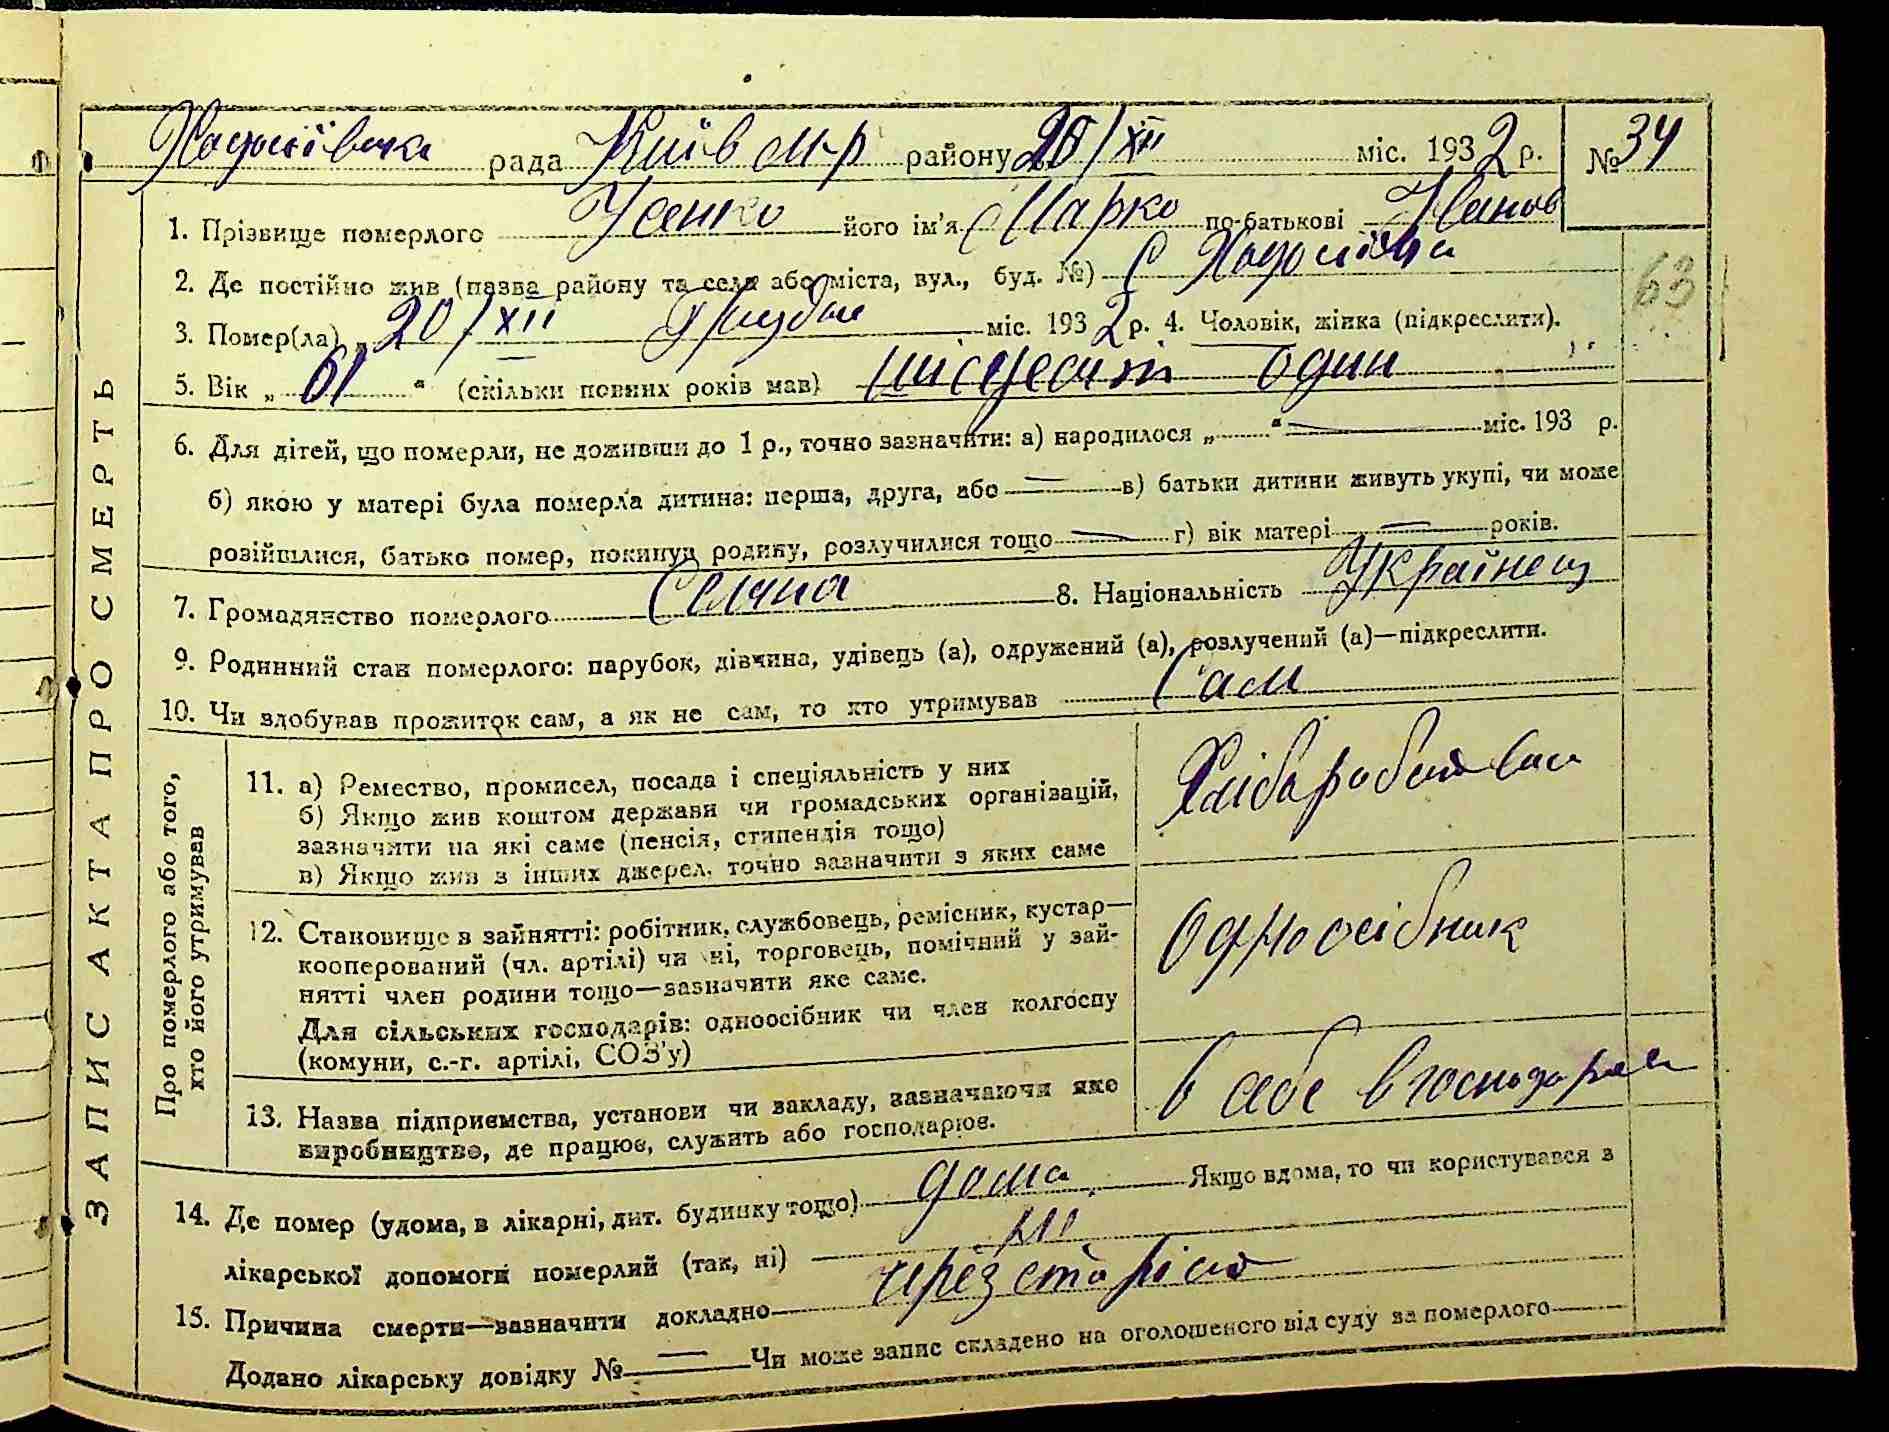 Ходосіївська рада Київ м-р району 20/XII міс. 1932 р. № 34
1. Прізвище померлого Усенко його ім'я Марко по-батькові Іванов
2. Де постійно жив (назва району та села або міста, вул., буд. №) С Ходосіївка
63
3. Помер(ла) „ 20/XII Грудня міс. 1932 р. 4. Чоловік, жінка (підкреслити).
5. Вік „ 61 “ (скільки повних років мав) шісдесят один
6. Для дітей, що померли, не доживши до 1 р., точно зазначити: а) народилося „ “ — міс. 193 р.
б) якою у матері була померла дитина: перша, друга, або — в) батьки дитини живуть укупі, чи може
розійшлися, батько помер, покинув родину, розлучилися тощо — г) вік матері — років.
7. Громадянство померлого 8. Національність Українец
9. Родинний стан померлого: парубок, дівчина, удівець (а), одружений (а), розлучений (а)—підкреслити.
10. Чи здобував прожиток сам, а як не сам, то хто утримував Сам
ЗАПИС АКТА ПРО СМЕРТЬ
Про померлого або того,
хто його утримував
11. а) Ремество, промисел, посада і спеціяльність у них
б) Якщо жив коштом держави чи громадських організацій,
зазначити на які саме (пенсія, стипендія тощо)
в) Якщо жив з інших джерел, точно зазначити з яких саме
12. Становище в зайнятті: робітник, службовець, ремісник, кустар—
кооперований (чл. артілі) чи ні, торговець, помічний у зай-
нятті член родини тощо—зазначити яке саме.
Для сільських господарів: одноосібник чи член колгоспу
(комуни, с.-г. артілі, СОЗ'у)
одноосібник
13. Назва підприємства, установи чи закладу, зазначаючи яке
виробництво, де працює, служить або господарює.
в себе в господарст
14. Де помер (удома, в лікарні, дит. будинку тощо) дома Якщо вдома, то чи користувався з
лікарської допомоги померлий (так, ні) ні
15. Причина смерти—зазначити докладно— через старість
Додано лікарську довідку № — Чи може запис складено на оголошеного від суду за померлого